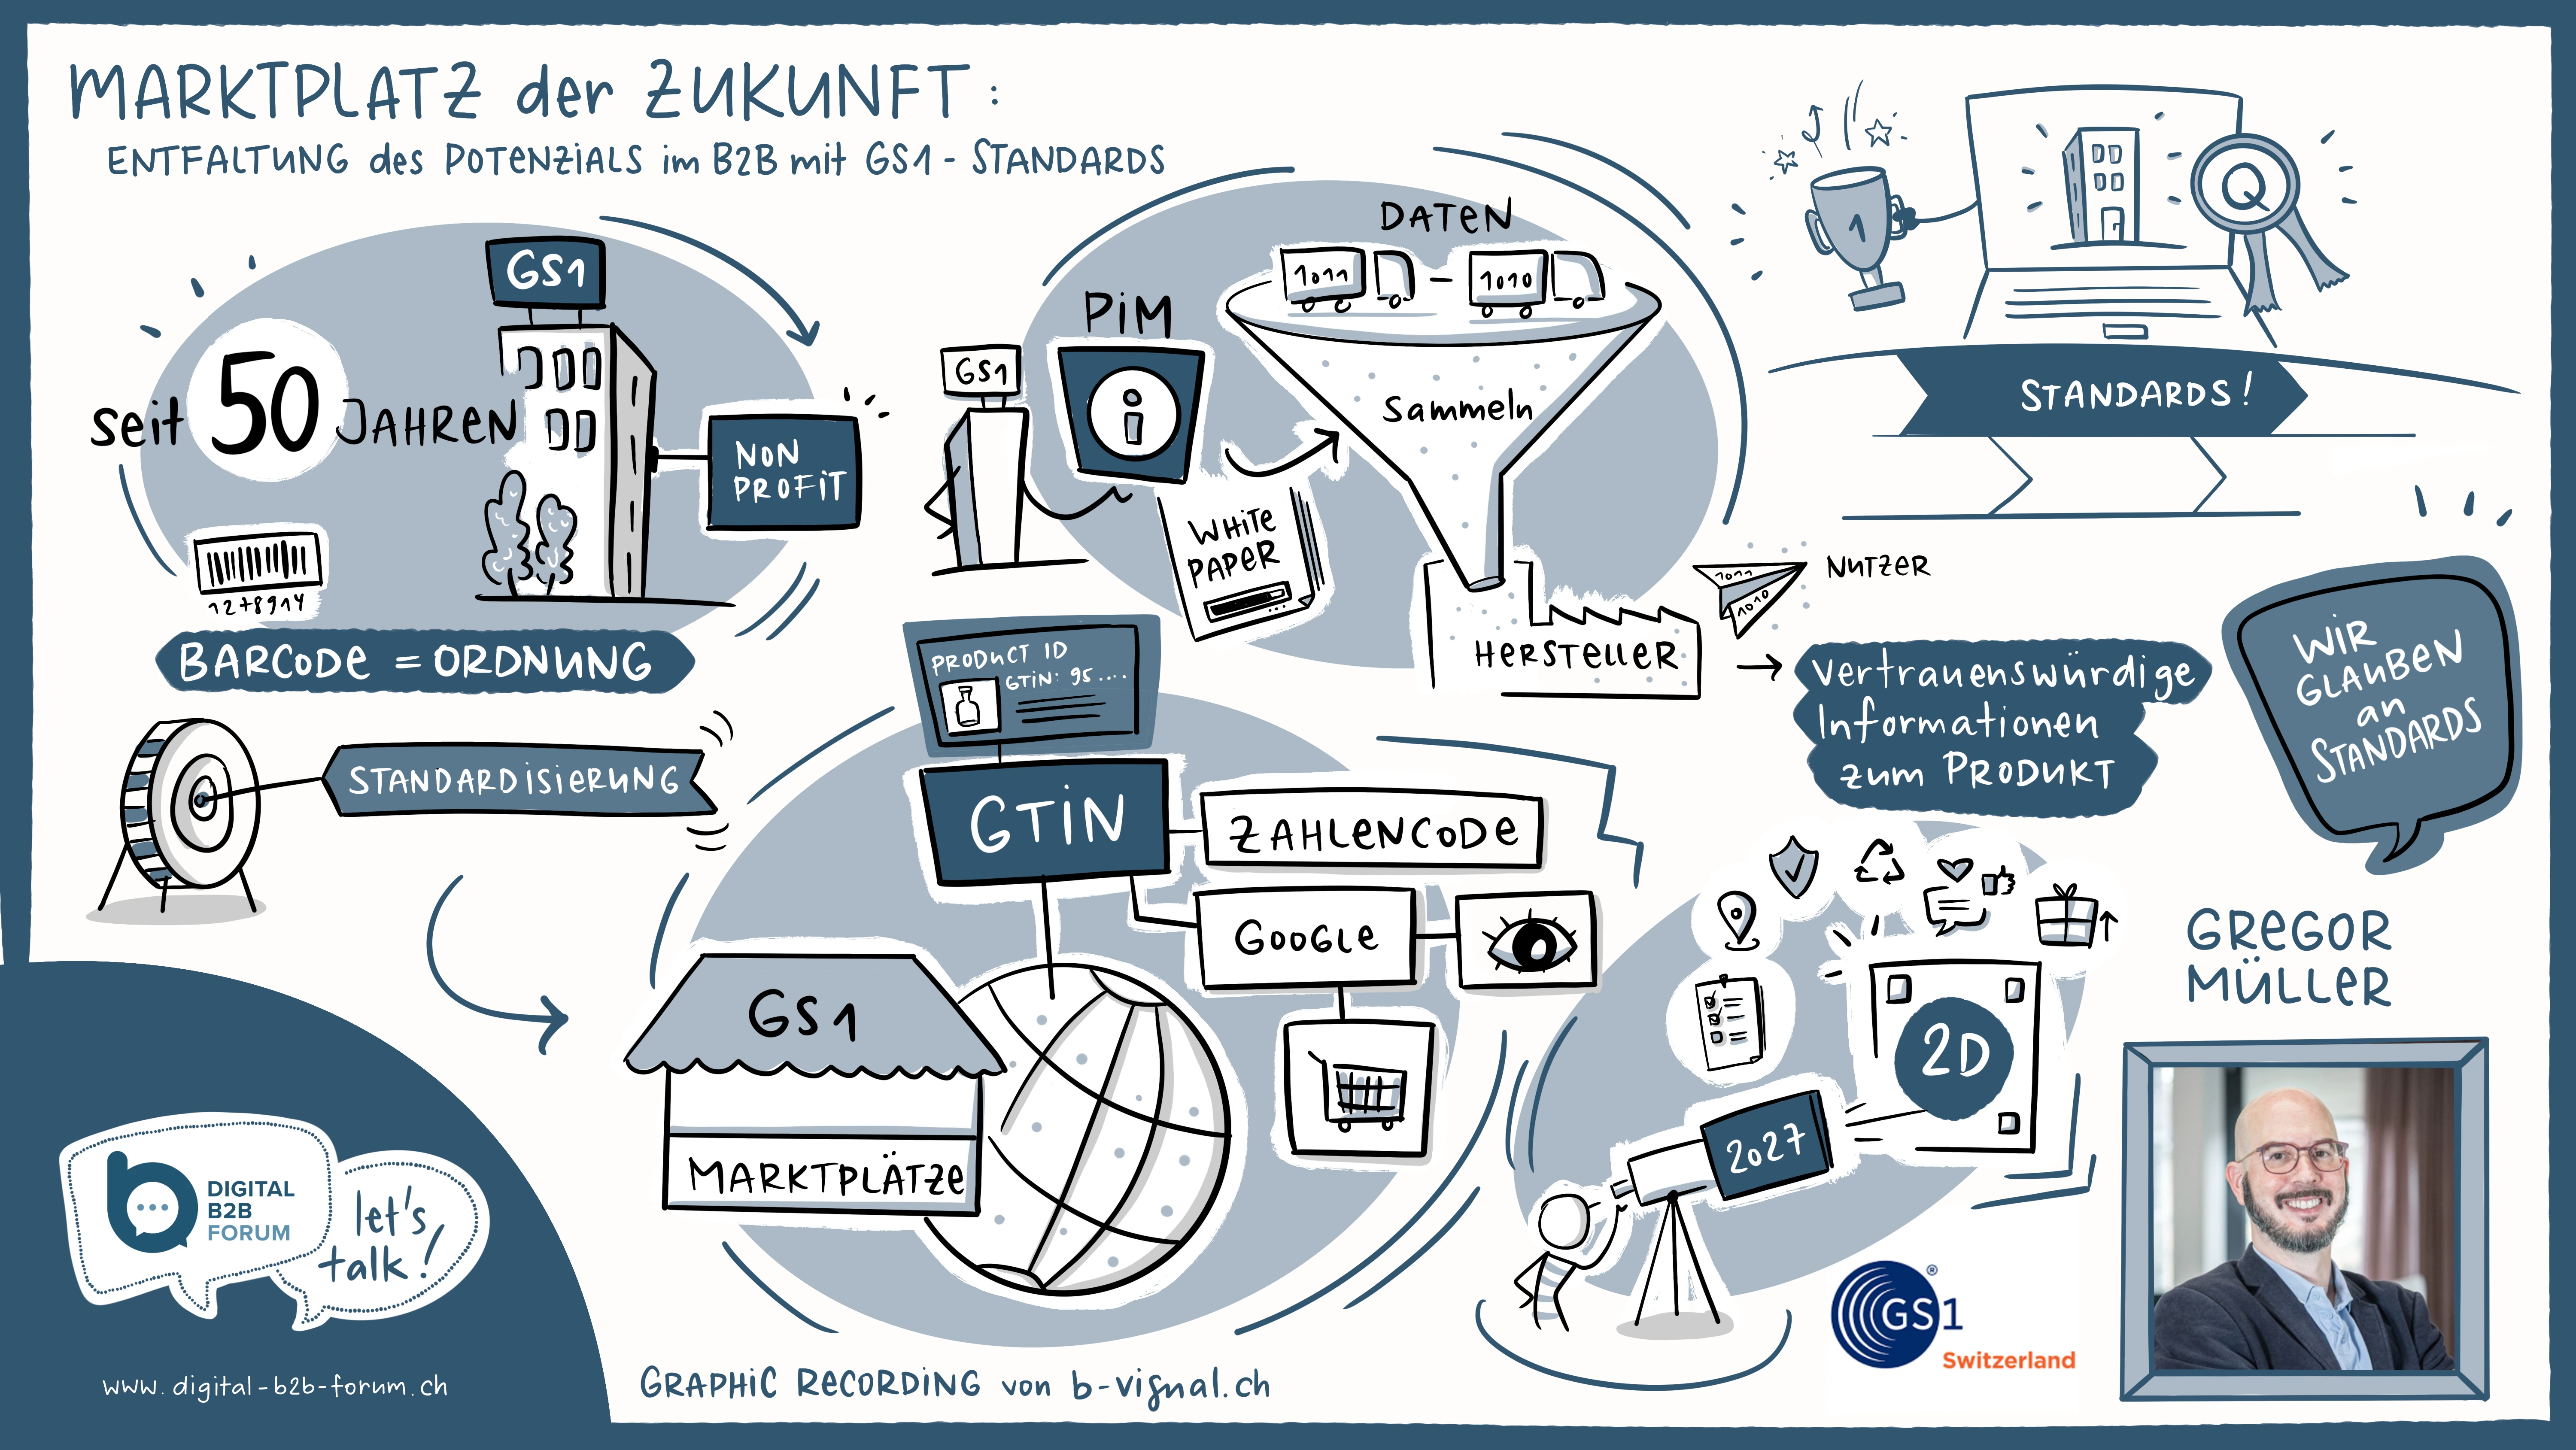 MARKTPLATZ der ZUKUNFT:
ENTFALTUNG des POTENZIALS im B2B mit GS1 - STANDARDS
GS1
seit 50 JAHREN
NON
PROFIT
1278914
BARCODE = ORDNUNG
STANDARDISIERUNG
GS1
PIM
i
WHITE
PAPER
DATEN
1011 - 1010
Sammeln
HERSTELLER
1011
1010
NUTZER
Vertrauenswürdige
Informationen
zum PRODUKT
1
Q
STANDARDS!
WIR
GLAUBEN
an
STANDARDS
PRODUCT ID
GTIN: 95....
GTIN
ZAHLENCODE
GOOGLE
GS1
MARKTPLÄTZE
2D
2027
GREGOR
MÜLLER
GS1
®
Switzerland
b
DIGITAL
B2B
FORUM
let's
talk!
www.digital-b2b-forum.ch
GRAPHIC RECORDING von b-visual.ch